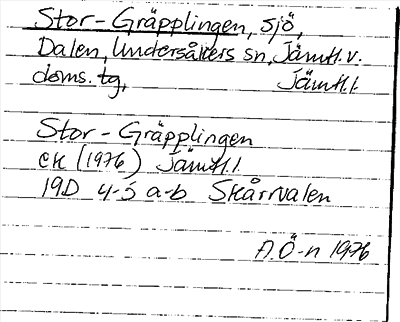 Stor-Gräpplingen, sjö,
Dalen, Undersåkers sn, Jämtl. v.
doms. tg, Jämtl. l.
Stor-Gräpplingen
ek (1976) Jämtl. l.
19D 4-5 a-b Skårvalen
A.Ö-n 1976